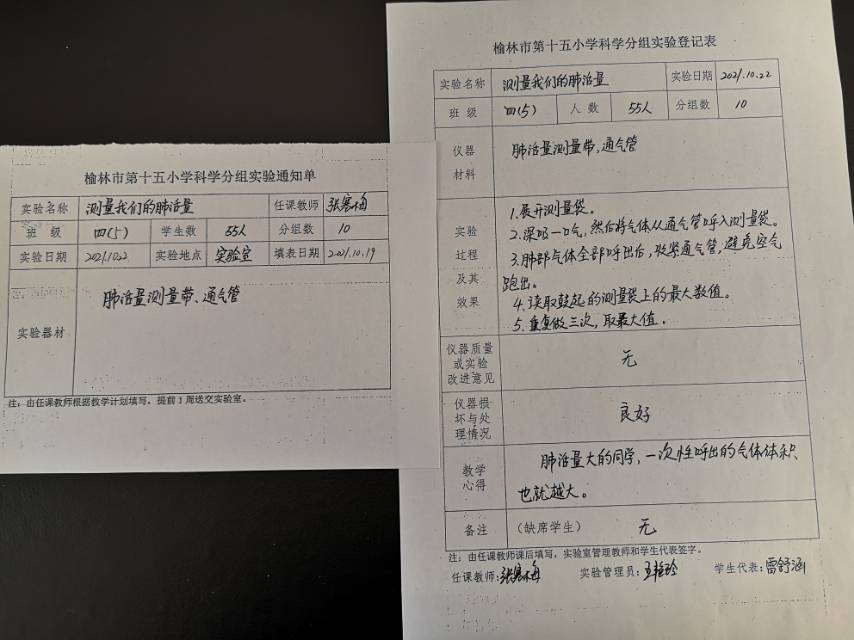 榆林市第十五小学科学分组实验通知单
实验名称 测量我们的肺活量 任课教师 张寒梅
班 级 四(5) 学生数 55人 分组数 10
实验日期 2021.10.22 实验地点 实验室 填表日期 2021.10.19
实验器材 肺活量测量带、通气管
注：由任课教师根据教学计划填写，提前1周送交实验室。
榆林市第十五小学科学分组实验登记表
实验名称 测量我们的肺活量 实验日期 2021.10.22
班 级 四(5) 人 数 55人 分组数 10
仪器材料 肺活量测量带,通气管
实验过程及其效果
1.展开测量袋。
2.深吸一口气，然后将气体从通气管呼入测量袋。
3.肺部气体全部呼出后，收紧通气管，避免空气
跑出。
4.读取鼓起的测量袋上的最大数值。
5.重复做三次，取最大值。
仪器质量或实验改进意见 无
仪器损坏与处理情况 良好
教学心得 肺活量大的同学，一次性呼出的气体体积
也就越大。
备注 （缺席学生） 无
注：由任课教师课后填写，实验室管理教师和学生代表签字。
任课教师:张寒梅 实验管理员:王艳玲 学生代表:雷舒涵